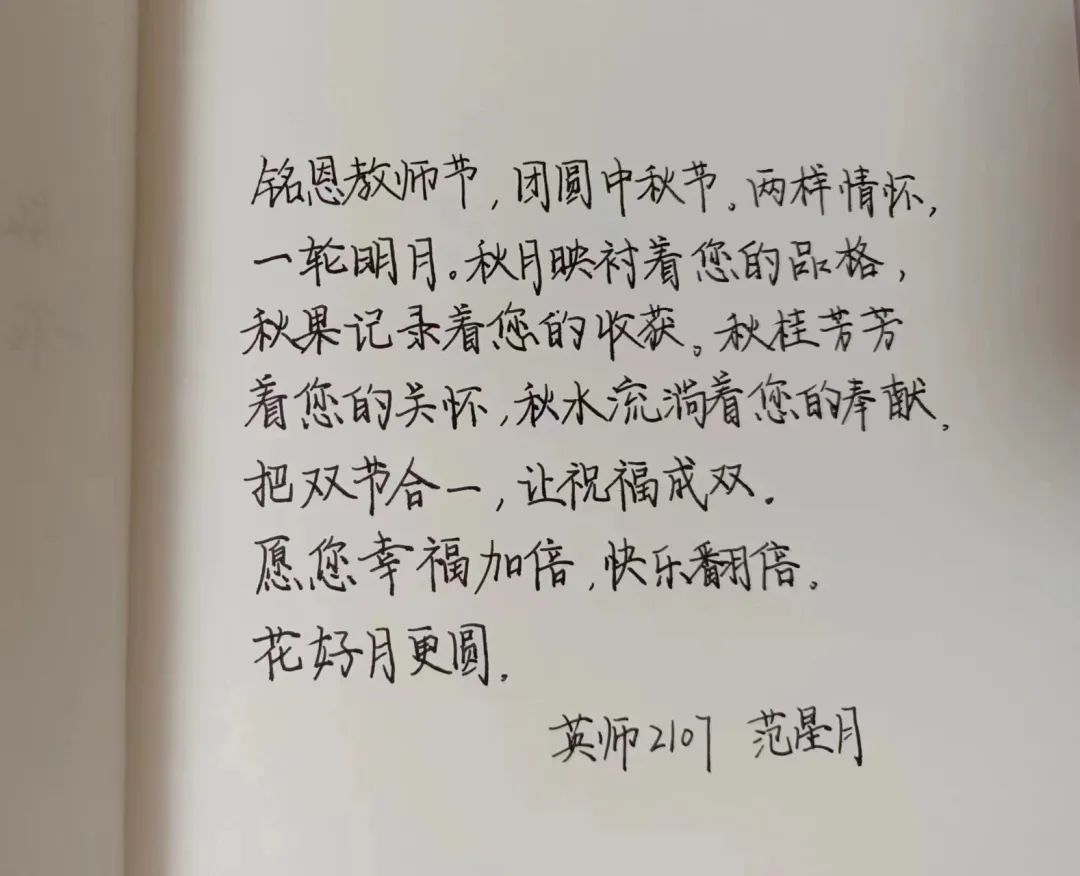 铭恩教师节,团圆中秋节。两样情怀,
一轮明月。秋月映衬着您的品格,
秋果记录着您的收获。秋桂芳芳
着您的关怀,秋水流淌着您的奉献。
把双节合一,让祝福成双.
愿您幸福加倍,快乐翻倍.
花好月更圆.
英师2107 范星月